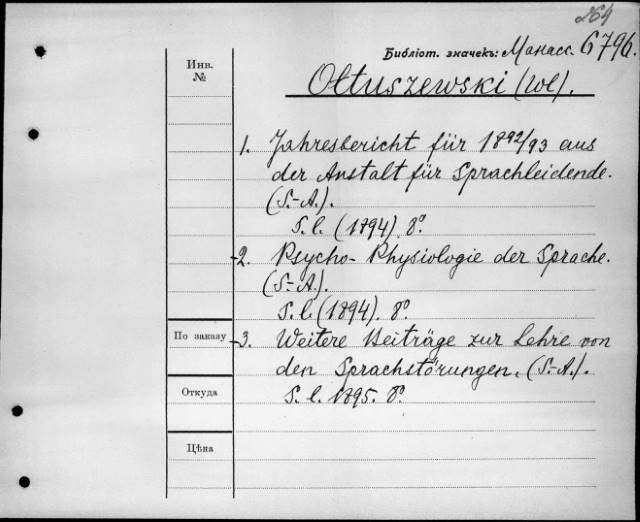 264
Библіот. значекъ: Манасс. 6796.
Инв.
№
Ołtuszewski (Wł).
1. Jahresbericht für 1892/93 aus
der Anstalt für Sprachleidende.
(S.-A.).
S. l. (1794). 8º.
2. Psycho-Physiologie der Sprache.
(S.-A.).
S. l. (1894). 8º.
По заказу
3. Weitere Beiträge zur Lehre von
den Sprachstörungen. (S.-A.).
Откуда
S. l. 1895. 8º.
Цѣна